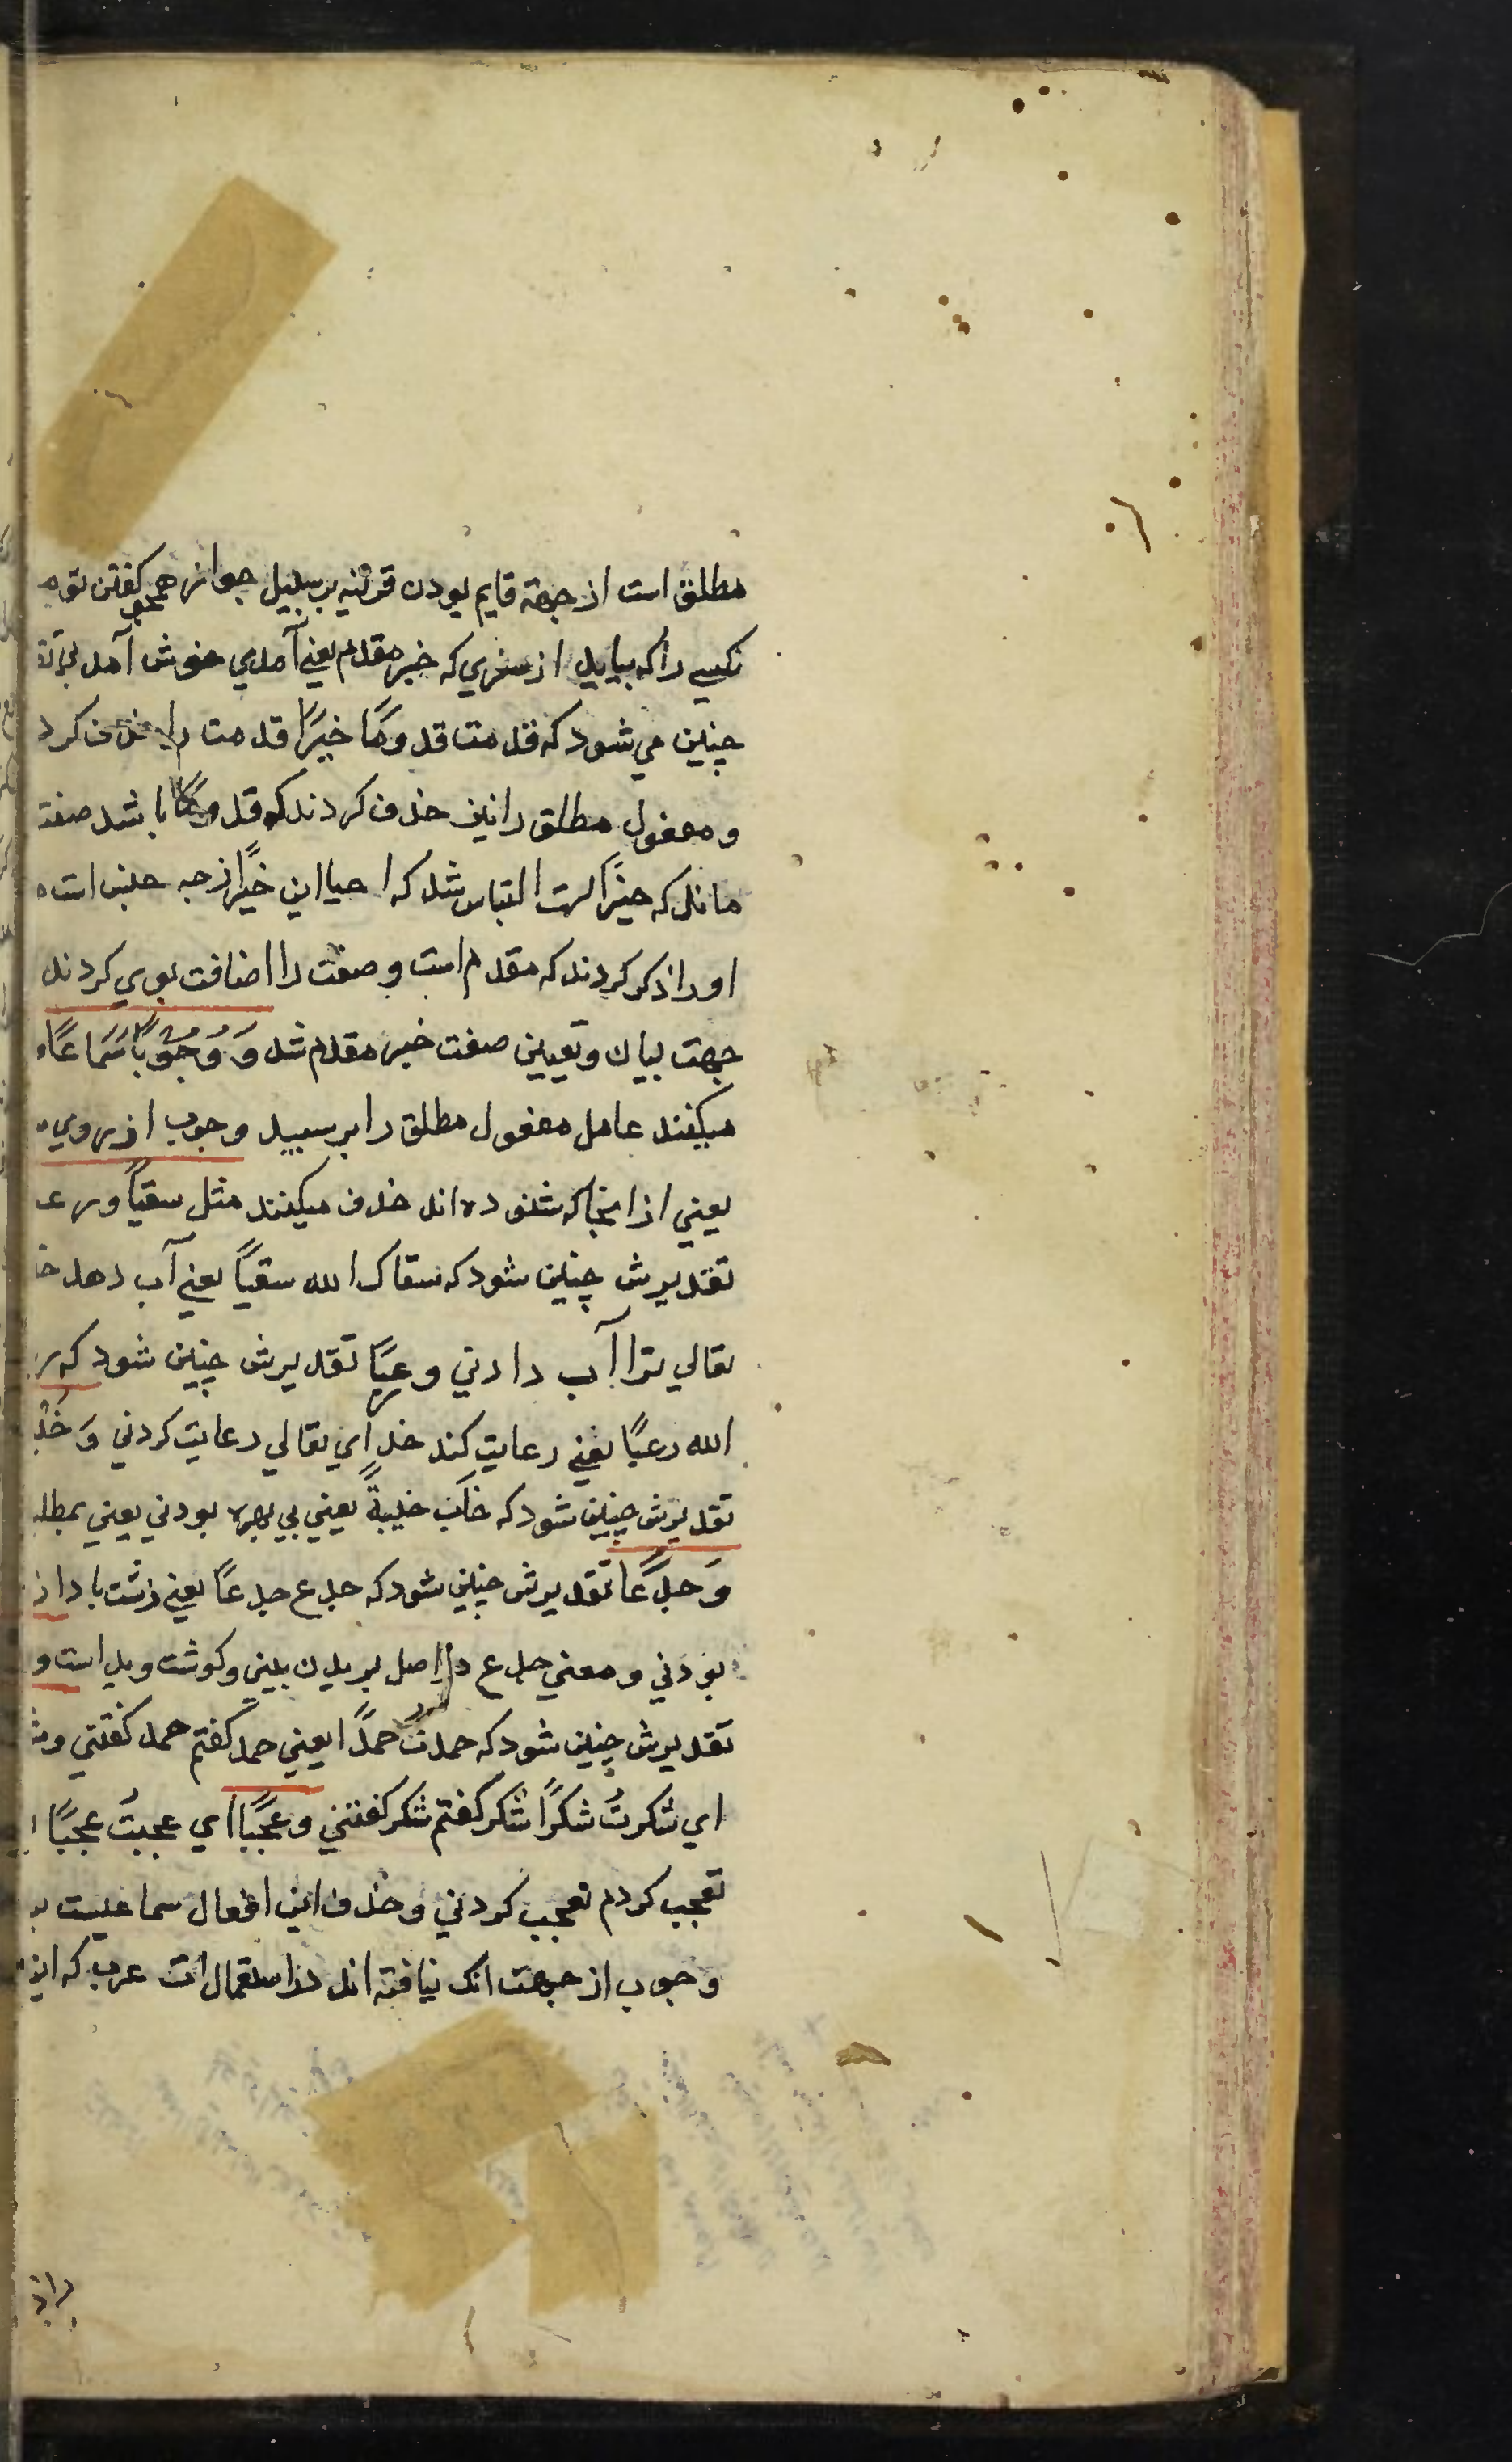 مطلق است از جهة قایم بودن قرینه بر سبیل جواز همچو گفتن تو
نکسی را که بیاید از سفری که خیر مقدم یعنی آمدی خوش آمدنی تق
چنین می شود که قدمت قدومًا خیرًا قدمت را حذف کرد
و مفعول مطلق را نیز حذف کردند که قدومًا باشد صفت
ماند که خیرًا است التباس شد که احیا این خیرًا از چه جنس است
او را ذکر کردند که مقدم است و صفت را اضافت بوی کردند
جهت بیان و تعیین صفت خیر مقدم شد وَ وُجُوبًا سَمَاعًا
میکنند عامل مفعول مطلق را بر سبیل وجوب از روی
یعنی از اینجا که شنوده اند حذف میکنند مثل سقیًا و رع
تقدیرش چنین شود که سقاک الله سقیًا یعنی آب دهد خ
تعالی ترا آب دادنی و رعیًا تقدیرش چنین شود که ر
الله رعیًا یعنی رعایت کند خدای تعالی رعایت کردنی وَ خَیْ
تقدیرش چنین شود که خابَ خیبةً یعنی بی بهره بودنی یعنی بمطل
وَ جَدْعًا تقدیرش چنین شود که جدع جدعًا یعنی زشت باد از
بودنی و معنی جدع در اصل بریدن بینی و گوشت و ید است و
تقدیرش چنین شود که حمدتُ حمدًا یعنی حمد گفتم حمد گفتنی و ش
ای شکرتُ شکرًا شکر گفتم شکر گفتنی و عجبًا ای عجبتُ عجبًا
تعجب کردم تعجب کردنی و حذف این افعال سماعیست بر
وجوب از جهت انک نیافته اند در استعمالات عرب که این
براز